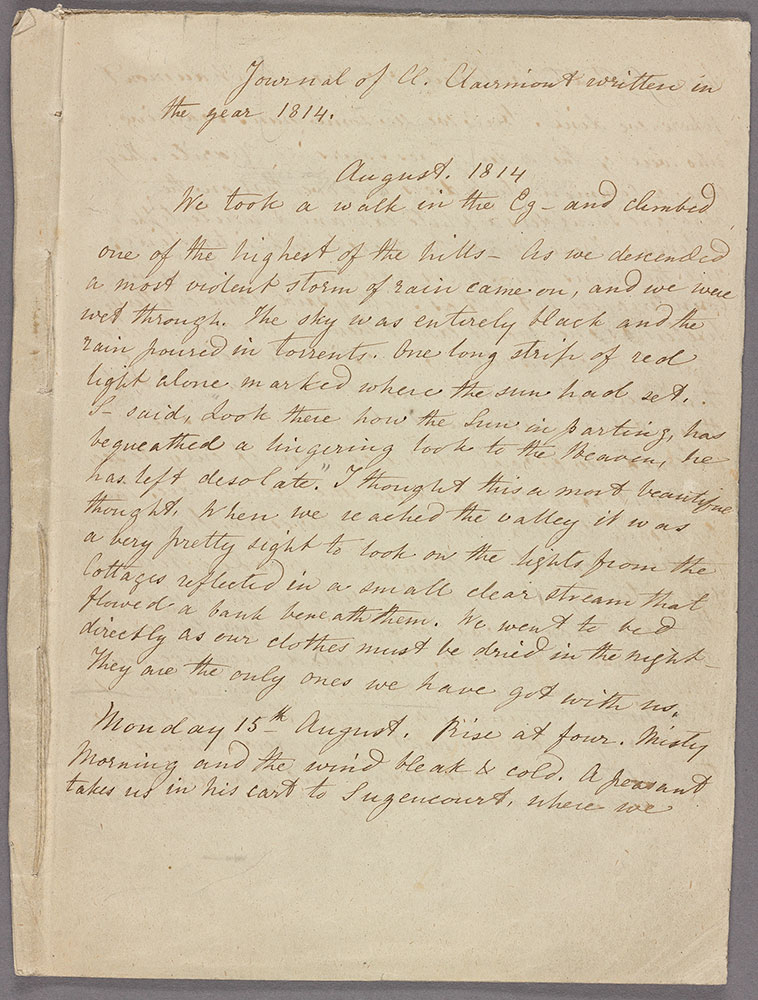 Journal of Cl. Clairmont written in
the year 1814.
August. 1814
We took a walk in the Eg- and climbed
one of the highest of the hills - As we descended
a most violent storm of rain came on, and we were
wet through. The sky was entirely black and the
rain poured in torrents. One long strip of red
light alone marked where the sun had set.
S- said, Look there how the Sun in parting, has
bequeathed a lingering look to the Heaven, he
has left desolate." I thought this a most beautiful
thought. When we reached the valley it was
a very pretty sight to look on the lights from the
Cottages reflected in a small clear stream that
flowed a bank beneath them. We went to bed
directly as our clothes must be dried in the night -
They are the only ones we have got with us.
Monday 15th August. Rise at four. Misty
Morning and the wind bleak & cold. A peasant
takes us in his cart to Sugencourt, where we